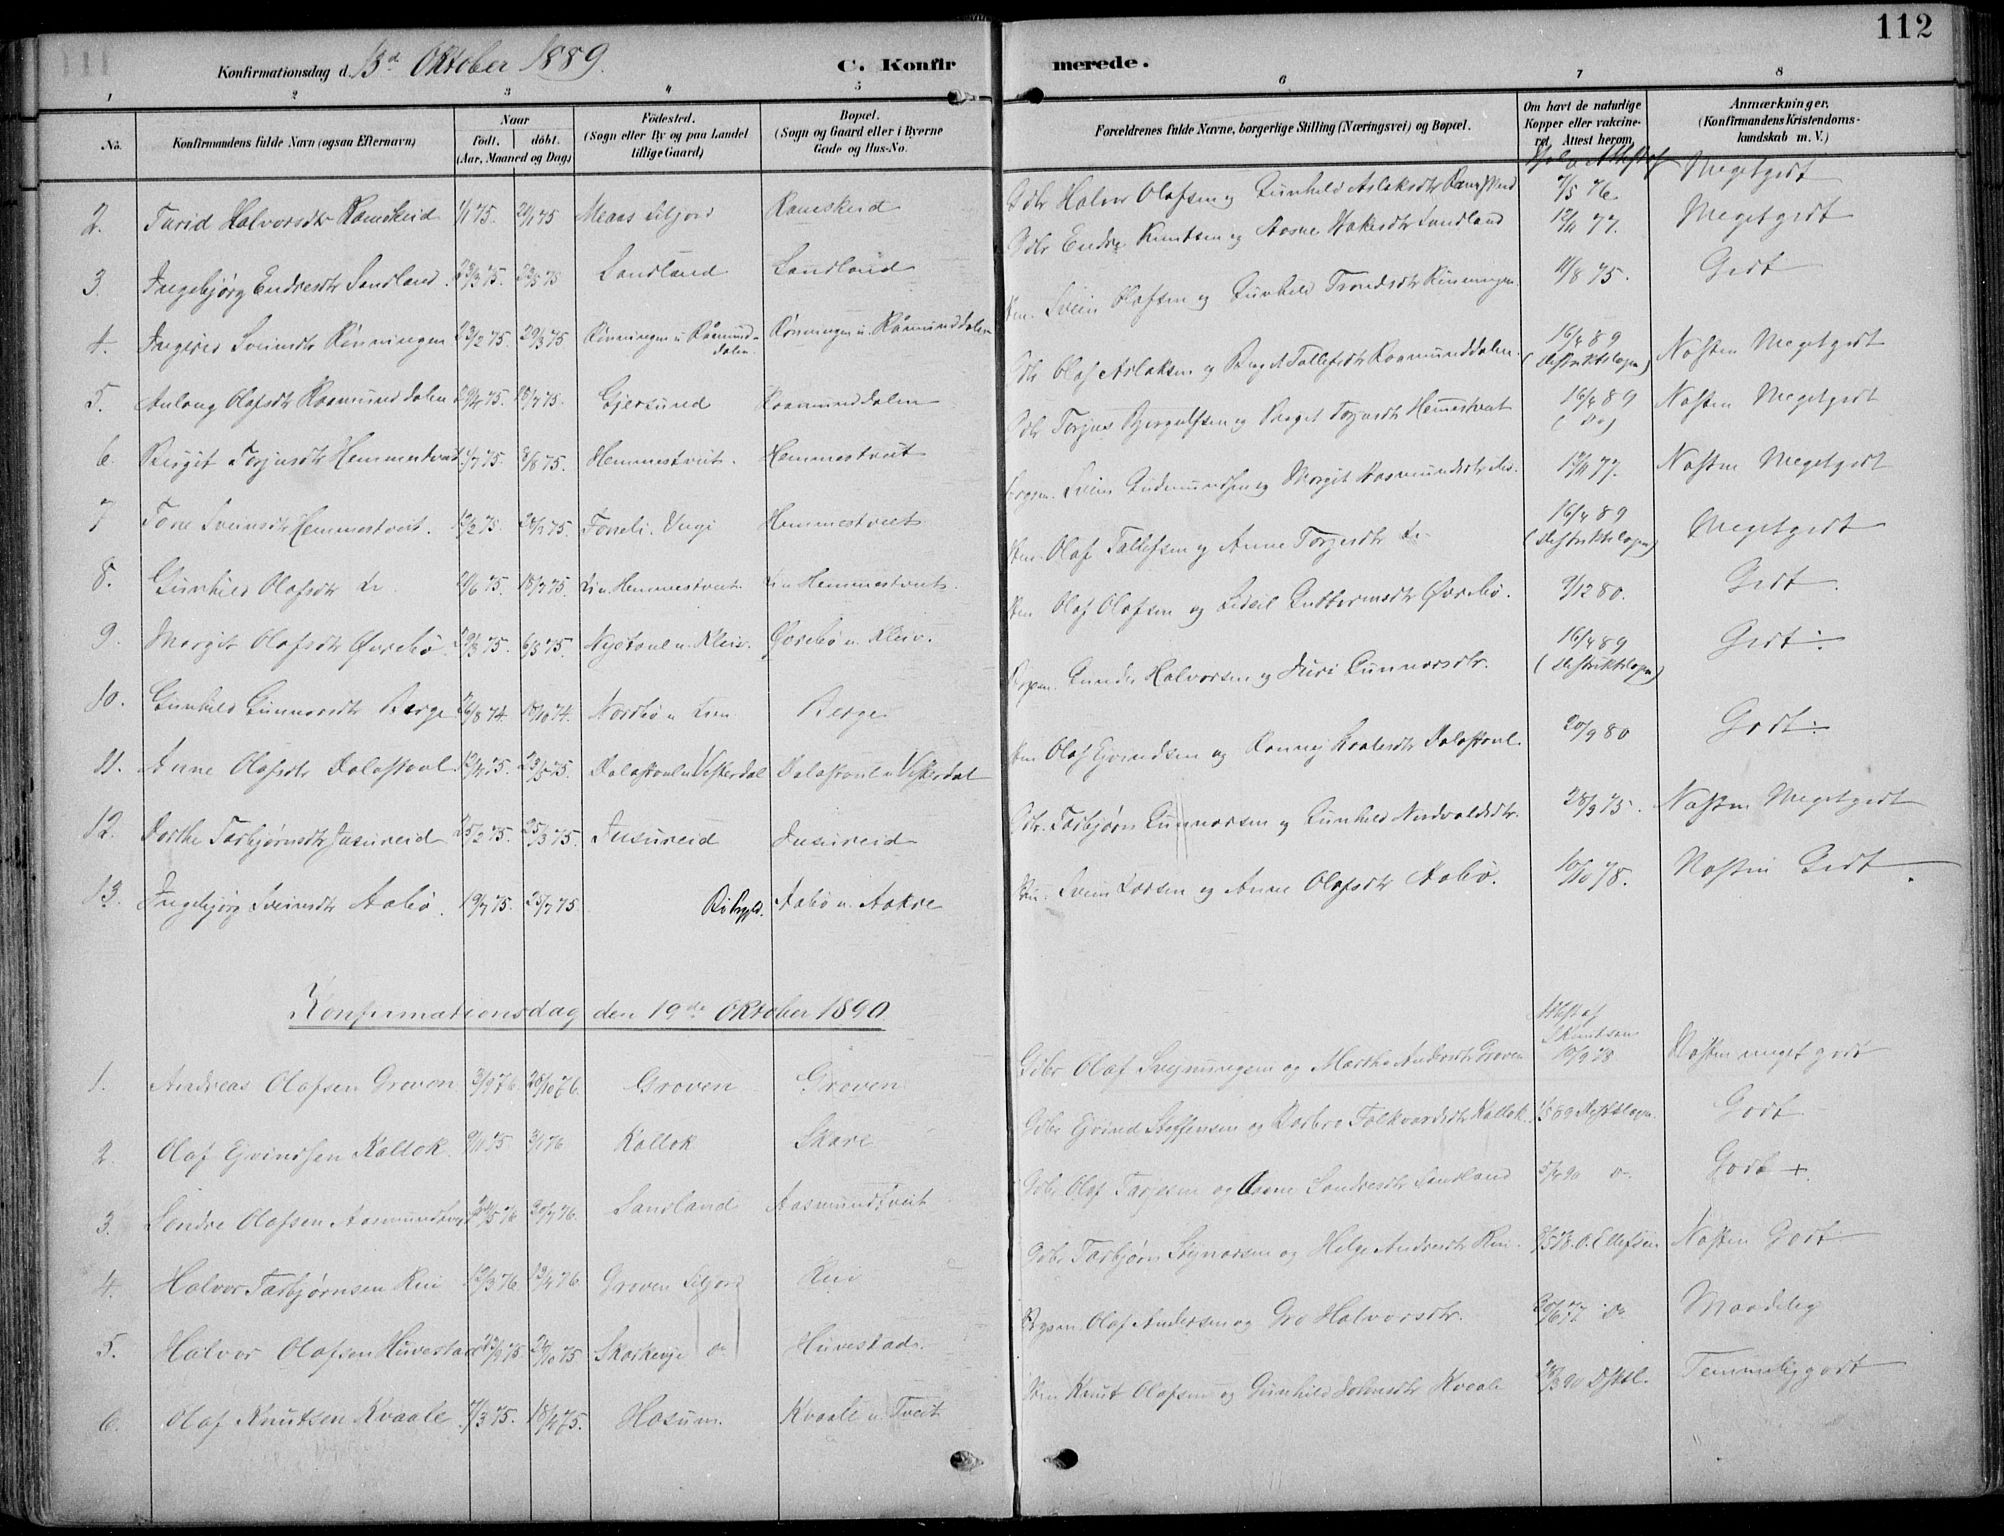 112
Konfirmationsdag d. 13d Oktober 1889.
C. Konfirmerede.
1 2 3 4 5 6 7 8
No.
Konfirmandens fulde Navn (ogsaa Efternavn)
Naar
födt. döbt.
(Aar, Maaned og Dag)
Födested.
(Sogn eller By og paa Landet
tillige Gaard)
Bopæl.
(Sogn og Gaard eller i Byerne
Gade og Hus-No.
Forældrenes fulde Navne, borgerlige Stilling (Næringsvei) og Bopæl.
Om havt de naturlige
Kopper eller vakcine-
ret, Attest herom.
Anmærkninger.
(Konfirmandens Kristendoms-
kundskab m. V.)
2. Turid Halvorsdtr Ramskeid 1/1 75. 24/1 75 Moaas Siljord Ramskeid Gdbr Halvor Olafsen og Gunhild Aslaksdtr Ramskeid 7/5 76 Megetgodt
3. Ingebjørg Endresdtr Sandland 23/3 75. 23/5 75 Sandland Sandland Gdbr Endre Knutsen og Aasne Hakesdtr Sandland 12/11 77. Megetgodt
4. Ingerid Sveinsdtr Rønningen 23/2 75. 29/3 75 Rønningen u. Raamunddalen. Rønningen u. Raamunddalen Svein Olafsen og Gunhild Trondsdtr Rønningen 11/8 75. Godt
5. Anlaug Olafsdtr Raamunddalen 29/4 75. 18/7 75. Gjersund Raamunddalen Gdbr Olaf Aslaksen og Birgit Tallefsdtr Raamunddalen. 16/4 89 (Distriktslægen) Næsten Megetgodt
6. Birgit Torjusdtr Hemmestveit /7 75. 8/8 75. Hemmestveit. Hemmestveit Gdbr Torjus Bjørgulfsen og Birgit Torjusdtr Hemmestveit 16/4 89 (Do) Næsten Megetgodt
7 Tone Sveinsdtr Hemmestveit. 12/2 75. 28/3 75 Fonneli. Vingi Hemmestveit Svein Gudmundsen og Margit Aasmundsdtr 12/11 77. Næsten Megetgodt
8. Gunhild Olafsdtr Li 20/6 75. 18/7 75. Li u Hemmestveit Li u Hemmestveit. Olaf Tallefsen og Anne Torjusdtr Li 16/4 89 (Distriktslægen) Megetgodt
9. Margit Olafsdtr Øvrebø. 29/3 75. 6/5 75. Nystaul u. Kleiv. Øvrebø u. Kleiv. Olaf Olafsen og Sidsil Guttormsdtr Øvrebø. 9/12 80. Godt
10. Gunhild Gunnarsdtr Berge 26/8 74. 18/10 74. Nordbø u Lien Berge Gunder Halvorsen og Guri Gunnarsdtr. 16/4 89 (Distriktslægen) Godt
11. Anne Olafsdtr Dalastaul 13/4 75. 23/5 75. Dalastaul u Vesterdal Dalastaul u Vesterdal Olaf Eyvindsen og Rannei Dalastaul. 20/9 80 Godt
12. Dorthe Tarbjørnsdtr Jusureid 25/2 75. 25/3 75. Jusureid Jusureid Gdbr. Tarbjørn Gunnarsen og Gunhild Nerivaldsdtr. 28/9 75. Næsten Megetgodt
13. Ingebjørg Sveinsdtr Aabø. 19/7 75. 25/7 75 Aabø u. Aakre Svein Larsen og Anne Olafsdtr Aabø. 10/10 78. Næsten Godt
Konfirmationsdag den 19de Oktober 1890
1. Andreas Olafsen Groven 3/9 76. 28/10 76. Groven Groven Gdbr Olaf og Marthe Andersdtr Groven Knudsen 10/9 78 Næsten meget godt
2. Olaf Ejvindsen Kallok. 9/11 75 3/1 76 Kallok Skare Gdbr Ejvind Steffensen og Barbro Folkvardsdtr Kallok. 1/5 89 Godt
3. Sondre Olafsen Aasmundtveit 20/5 76 30/7 76. Sandland Aasmundtveit Gdbr Olaf Tarjesen og Aasne Sondresdtr Sandland 5/4 90 Godt +
4. Halvor Tarbjørnsen Rui 12/3 76. 13/4 76 Groven Siljord Rui Gdbr Tarbjørn og Helge Andresdtr Rui. O. Ellefsen Næsten Godt
5. Halvor Olafsen Huvestad 23/9 75 24/10 75 Huvestad. Olaf Andersen og Gro Halvorsdtr. 30/6 77 Do Maadelig
6. Olaf Knutsen Kvaale. 7/3 75. 18/4 75. Hosum. Kvaale u. Tveit Knut Olafsen og Gunhild Johnsdtr Kvaale Temmelig godt